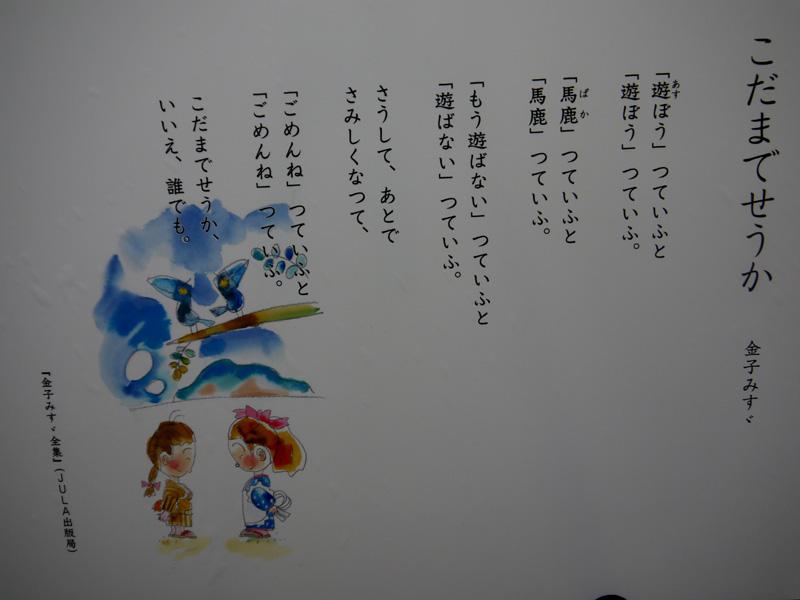 こだまでせうか
金子みすゞ
「遊ぼう」つていふと
「遊ぼう」つていふ。
「馬鹿」つていふと
「馬鹿」つていふ。
「もう遊ばない」つていふと
「遊ばない」つていふ。
さうして、あとで
さみしくなつて、
「ごめんね」つていふと
「ごめんね」つていふ。
こだまでせうか、
いいえ、誰でも。
『金子みすゞ全集』(JULA出版局)